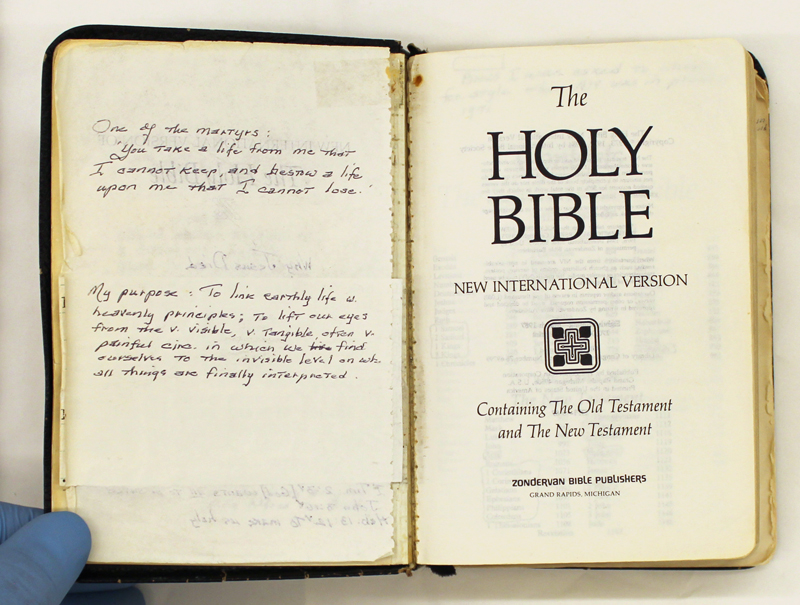 One of the martyrs:
"You take a life from me that
I cannot keep, and bestow a life
upon me that I cannot lose."
Why Jesus Died
My purpose: To link earthly life w.
heavenly principles; to lift our eyes
from the v. visible, v. tangible often v.
painful circ. in which we find
ourselves to the invisible level on wh
all things are finally interpreted.
The
HOLY
BIBLE
NEW INTERNATIONAL VERSION
Containing The Old Testament
and The New Testament
ZONDERVAN BIBLE PUBLISHERS
GRAND RAPIDS, MICHIGAN